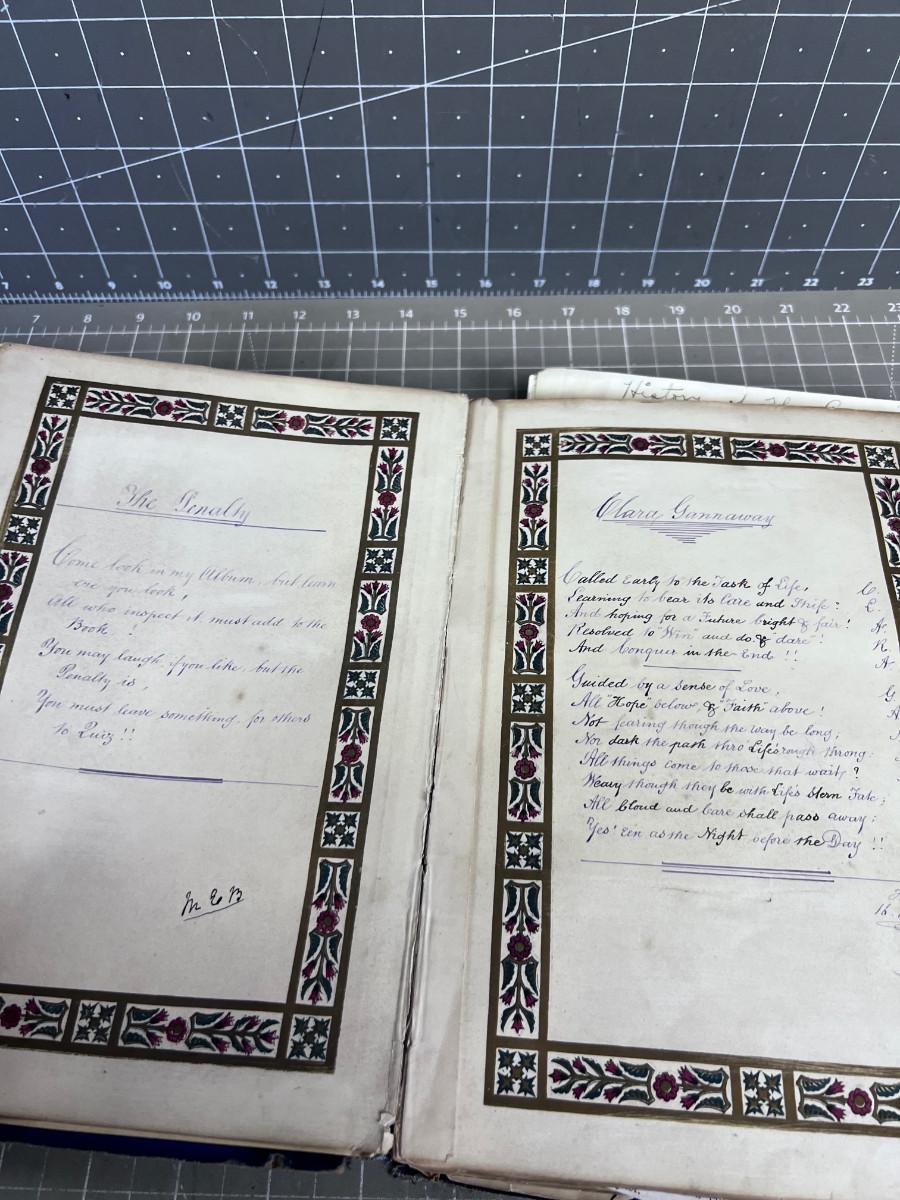 7 8 9 10 11 12 13 14 15 16 17 18 19 20 21 22 23
7 8 9 10 11 12 13 14 15 16 17 18 19 20 21 22 23
The Penalty
Come look in my Album, but learn
ere you look,
All who inspect it, must add to the
Book!
You may laugh, if you like, but the
Penalty is,
You must leave something, for others
to Quiz!!
M E B
Clara Gannaway
Called Early to the Task of Life, C.
Learning to bear its Care and Strife: L.
And hoping for a Future bright & fair! A.
Resolved to "Win" and do & "dare"! R.
And Conquer in the End!! A
Guided by a sense of Love, G
All "Hope" below, & "Faith" above! A
Not fearing though the way be long;
Nor dark the path thro' Life's rough throng:
All things come to those that wait?
Weary though they be with Life's stern Fate;
All Cloud and Care shall pass away;
Yes' E'en as the Night before the Day!!
16